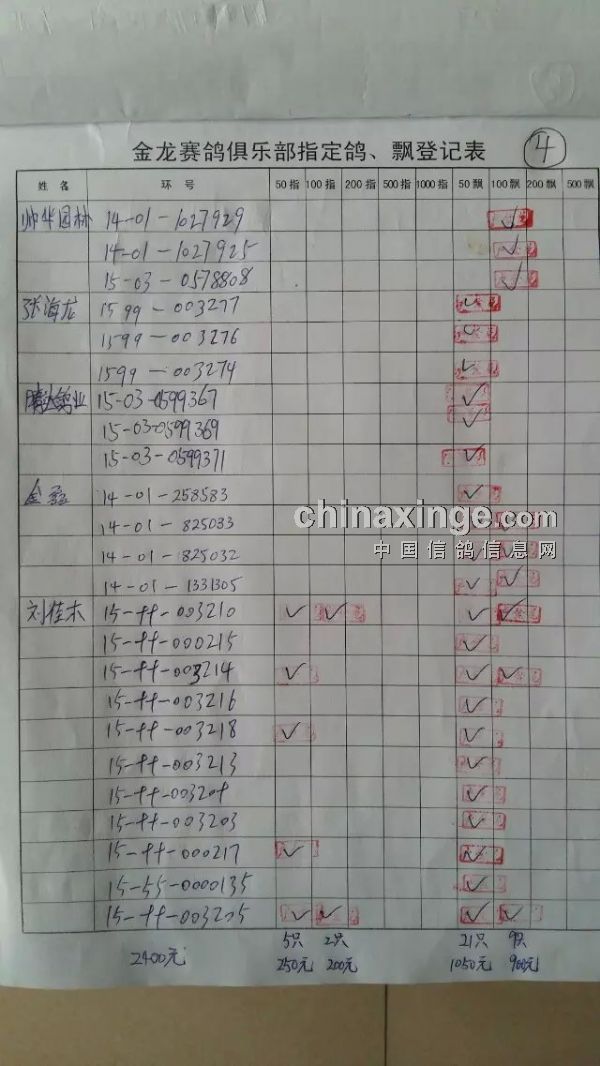 金龙赛鸽俱乐部指定鸽、飘登记表 4
姓名 环号 50指 100指 200指 500指 1000指 50飘 100飘 200飘 500飘
帅华园林 14-01-1027929 ✓
14-01-1027925 ✓
15-03-0578808 ✓
张海龙 1599-003277 ✓
1599-003276 ✓
1599-003274 ✓
腾达鸽业 15-03-0599367 ✓
15-03-0599369 ✓
15-03-0599371 ✓
14-01-258583 ✓
14-01-825033 ✓ ✓
14-01-825032 ✓ ✓
14-01-1331305 ✓ ✓
刘佳木 15-99-003210 ✓ ✓ ✓ ✓
15-99-000215 ✓
15-99-003214 ✓ ✓ ✓
15-99-003216 ✓
15-99-003218 ✓ ✓
15-99-003213 ✓
15-99-003201 ✓
15-99-003203 ✓
15-99-000217 ✓ ✓
15-55-0000135 ✓
15-99-003205 ✓ ✓ ✓ ✓
5只 2只 21只 9只
2400元 250元 200元 1050元 900元
chinaxinge.com
中国信鸽信息网